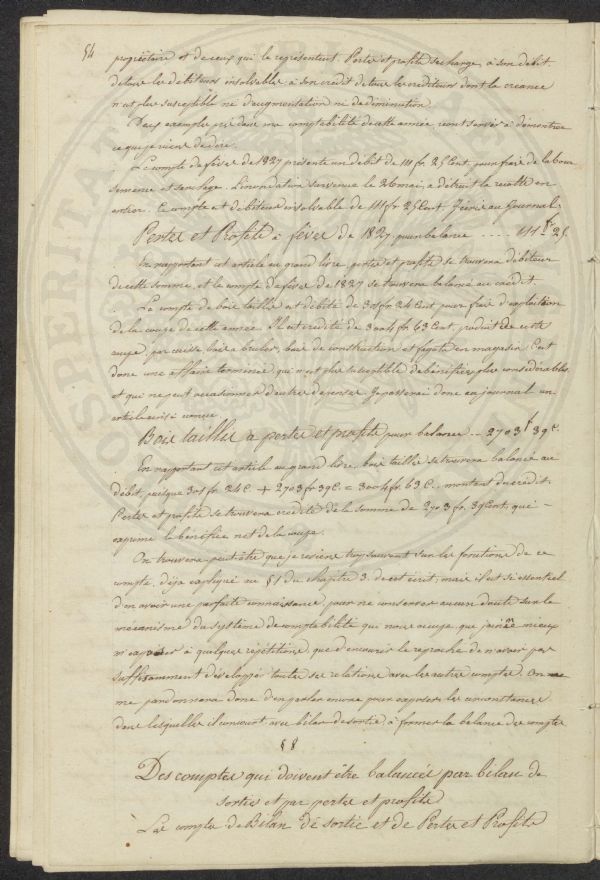 54
propriétaire et de ceux qui le représentent. Pertes et profits se charge, à son débit,
de tous les débiteurs insolvables, à son crédit de tous les créditeurs dont la créance
n'est plus susceptible ni d'augmentation ni de diminution.
Deux exemples pris dans ma comptabilité de cette année vont servir à démontrer
ce que je viens de dire.
Le compte de fèves de 1827 présente un débit de 111 fr. 25 Cent. pour frais de labour
semence et sarclage. L'inondation survenue le 26 mai, a détruit la récolte en
entier. Ce compte est débiteur insolvable de 111 fr 25 Cent. J'écris au Journal:
Pertes et Profits à fèves de 1827 pour balance ..... 111 fr 25.
En rapportant cet article au grand livre, pertes et profits se trouvera débiteur
de cette somme, et le compte de fèves de 1827 se trouvera balancé au crédit.
Le compte de bois taillis est débité de 301 fr. 24 Cent pour frais d'exploitation
de la coupe de cette année. Il est crédité de 3004 fr. 63 Cent, produit de cette
coupe, par caisse, bois à bruler, bois de construction, et fagots en magasin; C'est
donc une affaire terminée, qui n'est plus susceptible de bénéfices plus considérables,
et qui ne peut occasionner d'autres dépenses. Je passerai donc au journal un
article ainsi conçu.
Bois taillis a pertes et profits pour balance ... 2703 f 39 c.
En rapportant cet article au grand livre, bois taillis se trouvera balancé au
débit, puisque 301 fr. 24 C. + 2703 fr 39 C. = 3004 fr. 63 C. montant du crédit.
Pertes et profits se trouvera crédité de la somme de 2703 fr. 39 Cent, qui
exprime le bénéfice net de la coupe.
On trouvera peut être que je reviens trop souvent sur les fonctions de ce
compte, déja expliqué au §1 du chapitre 3. de cet écrit; mais il est si essentiel
d'en avoir une parfaite connaissance, pour ne conserver aucun doute sur le
mécanisme du système de comptabilité qui nous occupe, que j'aime mieux
m'exposer à quelques répétitions, que d'encourir le reproche de n'avoir pas
suffisamment développé toutes ses relations avec les autres comptes. On
me pardonnera donc d'en parler encore pour exposer les circonstances
dans lesquelles il concourt, avec bilan de sortie, à former la balance des comptes
§ 8
Des comptes qui doivent être balancés par bilan de
sortie et par pertes et profits
Les comptes de Bilan de sortie et de Pertes et Profits